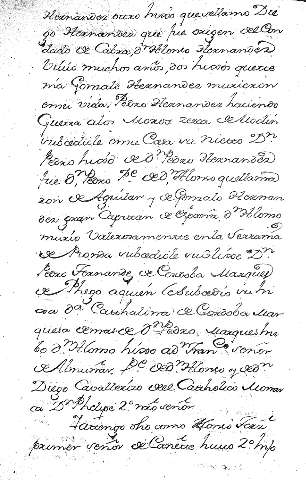 Hernandez otro hixo que se llamo Die
go Hernandez que fue origen del Con
dado de Cabra, Dn Alonso Hernandez
Vivio muchos años, dos hixos que te
nia Gonzalo Hernandez murieron
en su vida, Pedro Hernandez haciendo
Guerra a los Moros zerca de Moclin
subcediole en su Casa su Nieto Dn
Pedro hixo de Dn Pedro Hernandez
fue Dn Pedro Pe de Dn Alonso que llama
ron de Aguilar y de Gonzalo Hernan
dez gran Capitan de España, Dn Alonso
murio Valerosamente en la Serrania
de Ronda subcediole su hixo Dn
Pedro Fernandez de Cordoba Marques
de Priego a quien le subcedio su hi
xa Da Cathalina de Cordoba Mar
quesa demas de Dn Pedro, Marques hu
bo Dn Alonso hixo a Dn Franco señor
de Almuñas, Pe de Dn Alonso y de Dn
Diego Cavallerizo del Catholico Monar
ca Dn Phelipe 2o nro señor
primer señor de Cañete hubo 2o hijo